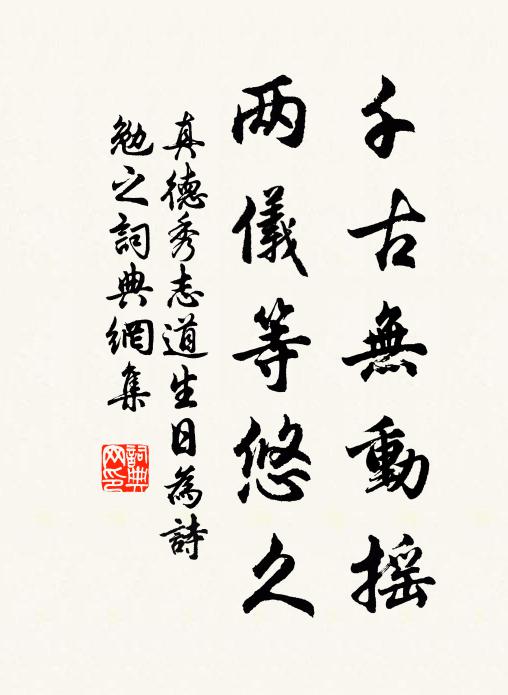 千古無動摇
两儀等悠久
真德秀志道生日為詩
勉之詞典網集
詞典
网印